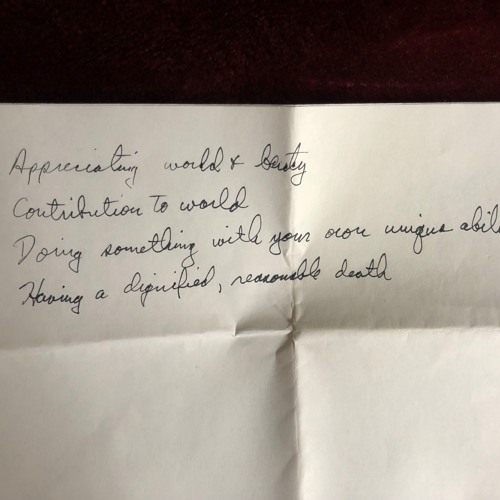 Appreciating world & beauty
Contribution to world
Doing something with your own unique abil
Having a dignified, reasonable death